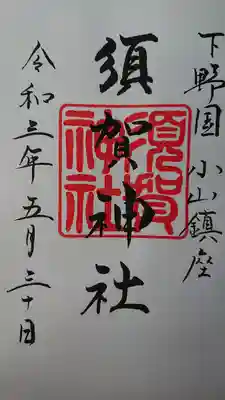 下野国 小山鎮座
須賀神社
須賀神社
令和三年五月三十日